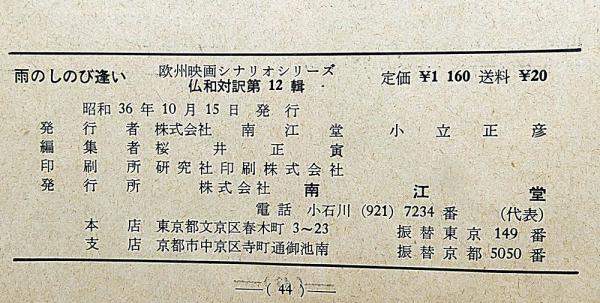 雨のしのび逢い 欧州映画シナリオシリーズ 仏和対訳第 12 輯 定価 ¥1 160 送料 ¥20
昭和 36 年 10 月 15 日 発 行
発 行 者 株式会社 南 江 堂 小 立 正 彦
編 集 者 桜 井 正 寅
印 刷 所 研究社印刷株式会社
発 行 所 株式会社 南 江 堂
電 話 小石川 (921) 7234 番 (代表)
本 店 東京都文京区春木町 3~23 振 替 東 京 149 番
支 店 京都市中京区寺町通御池南 振 替 京 都 5050 番
( 44 )